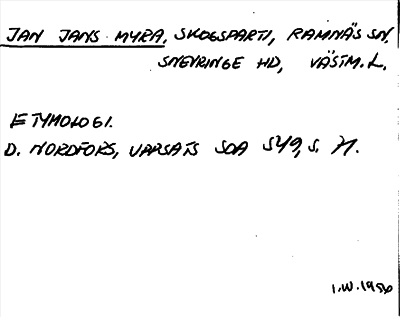 JAN JANS MYRA, SKOGSPARTI, RAMNÄS SN,
SNEVRINGE HD, VÄSTM. L.
ETYMOLOGI.
D. NORDFORS, UPPSATS SOA 549, S. 71.
I.W. 1950